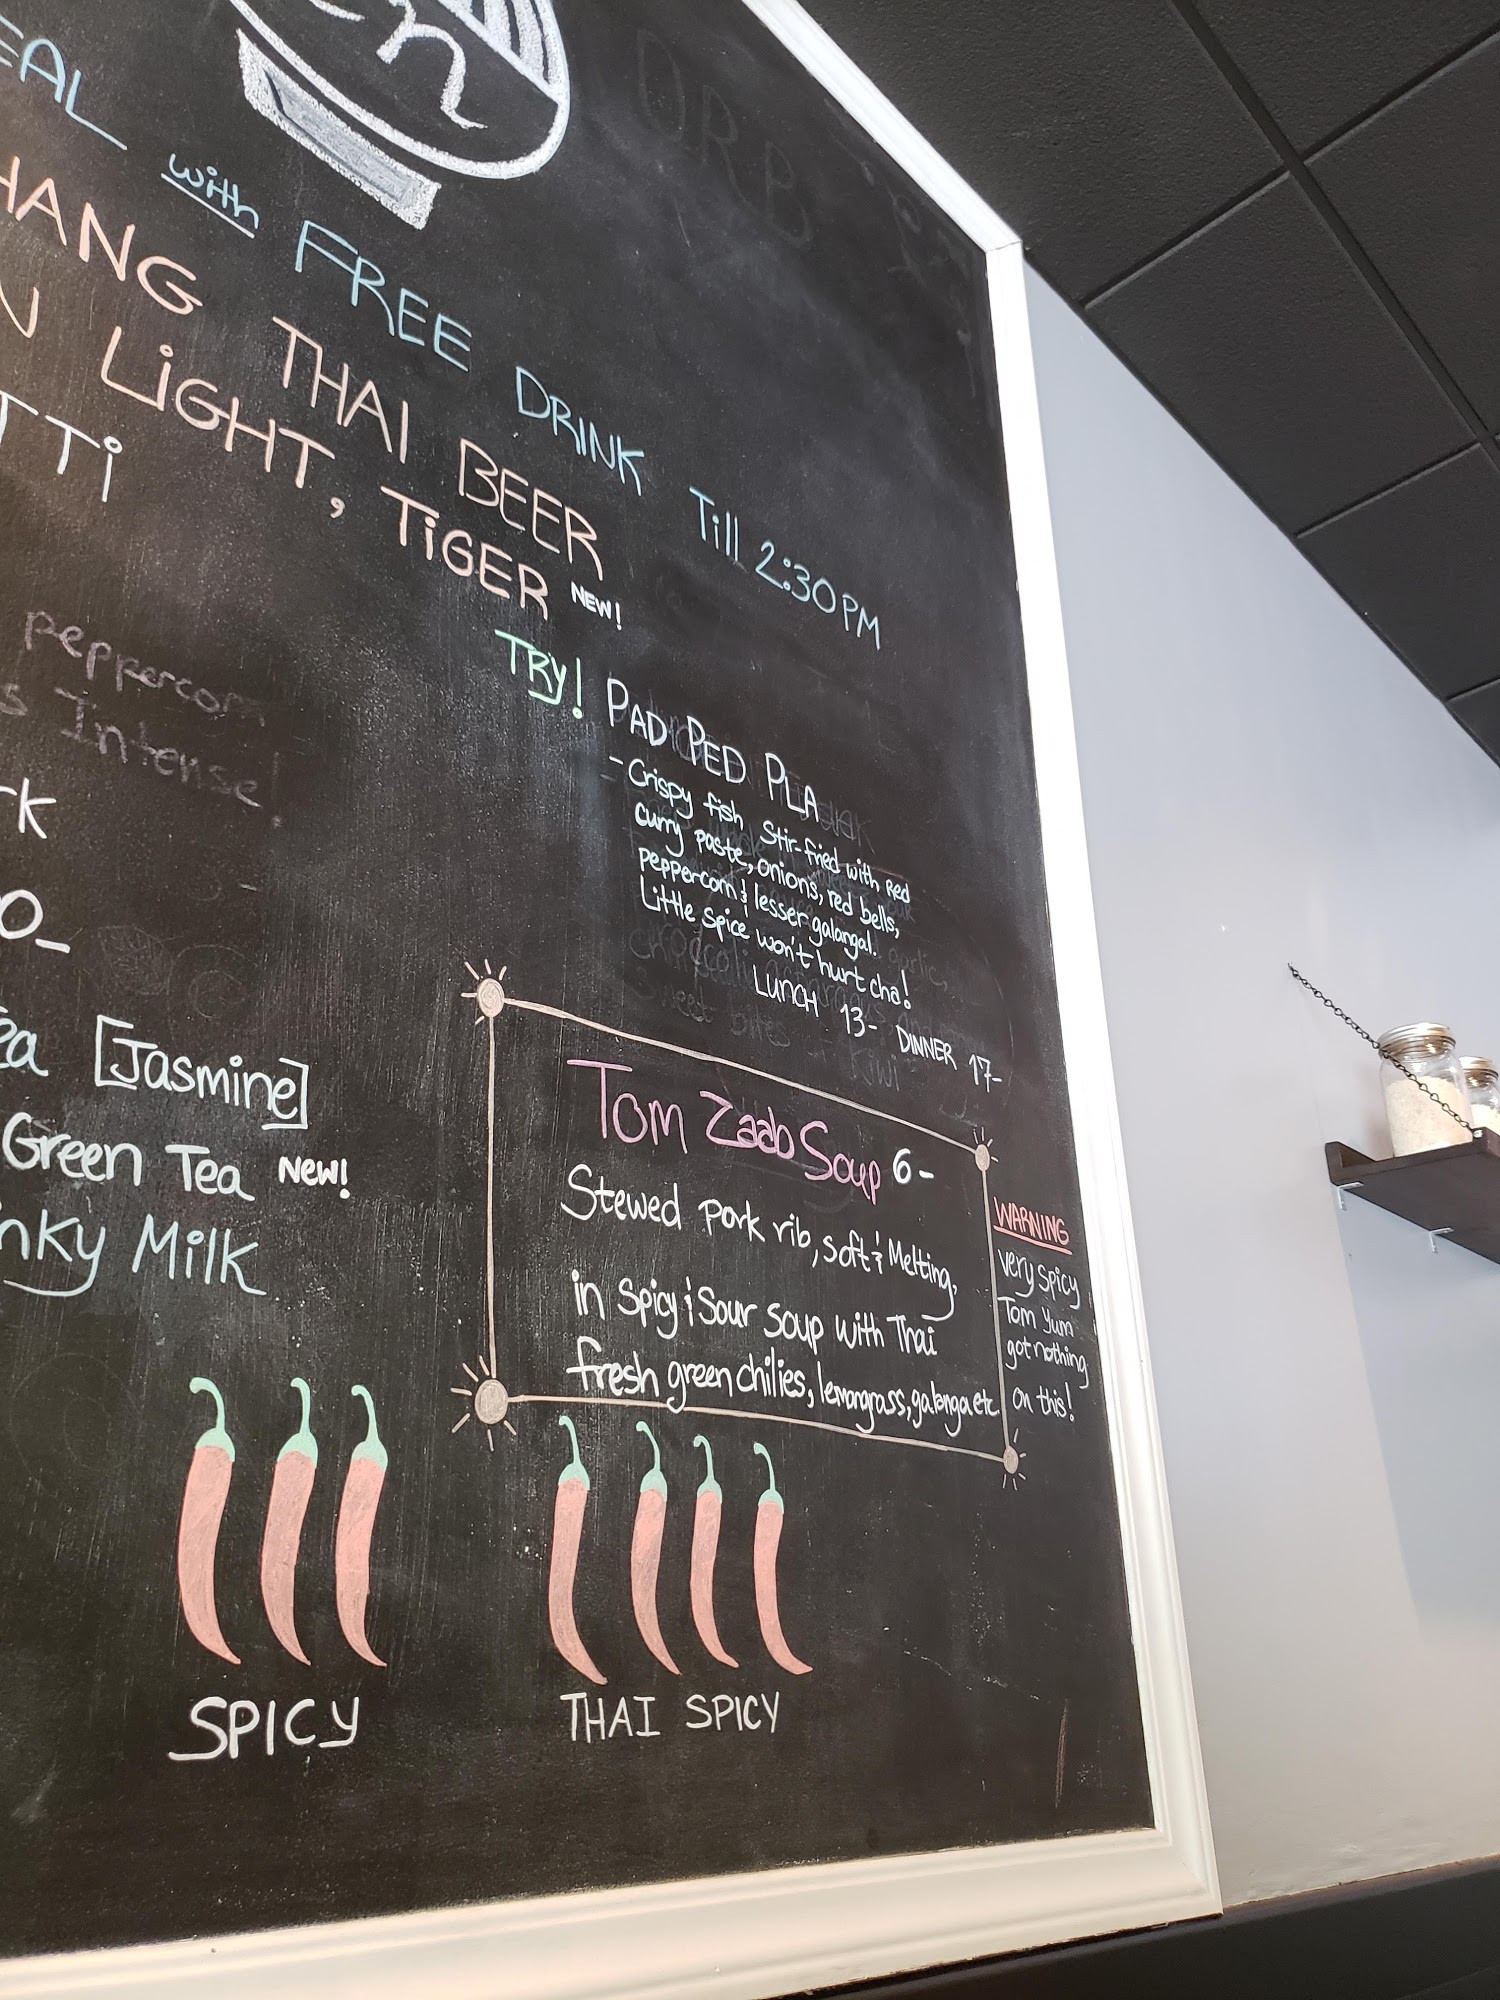 with FREE DRINK Till 2:30PM
THAI BEER
LiGHT, TiGER NEW!
peppercorn
Intense!
TRY! PAD PED PLA
- Crispy fish Stir-fried with Red
curry paste, onions, red bells,
peppercorn & lesser galangal.
Little spice won't hurt cha!
LUNCH 13- DINNER 17-
[Jasmine]
Green Tea New!
Milk
Tom Zaab Soup 6-
Stewed pork rib, soft & Melting,
in Spicy & Sour soup with Thai
fresh green chilies, lemongrass, galanga etc
WARNING
very spicy
Tom Yum
got nothing
on this!
SPICY
THAI SPICY